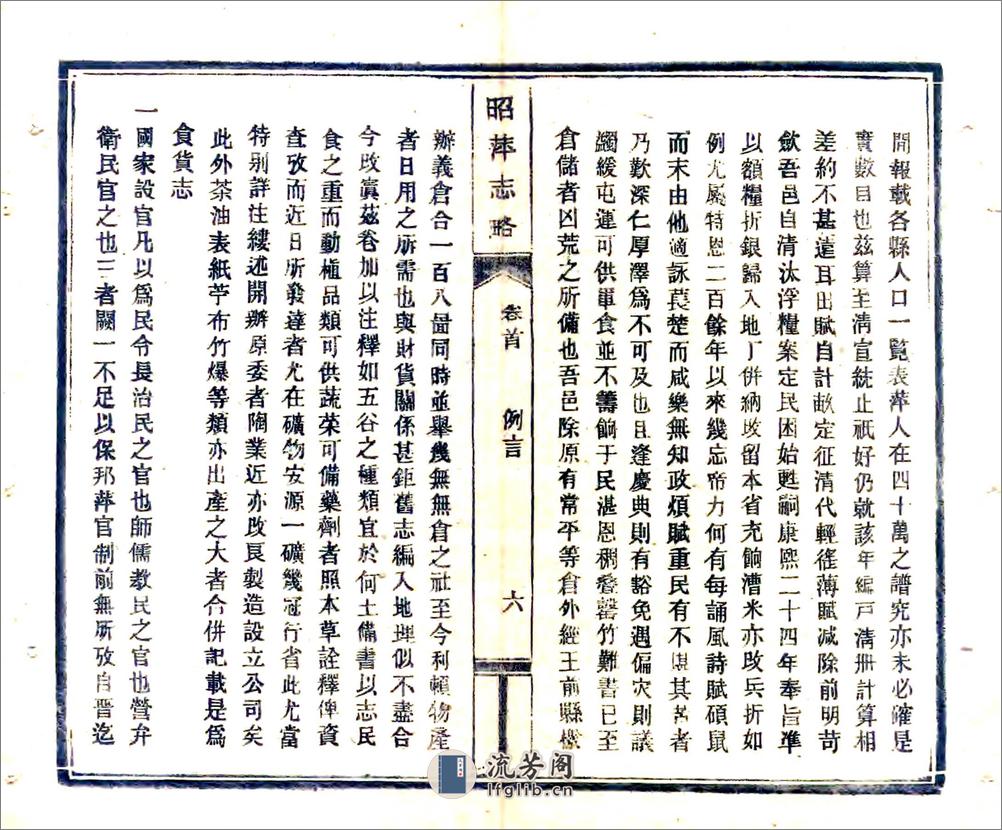 間報載各縣人口一覽表萍人在四十萬之譜究亦未必確是
實數目也茲算至清宣統止祇好仍就該年編戸清册計算相
差約不甚遠耳田賦自計畝定征清代輕徭薄賦減除前明苛
歛吾邑自清汰浮糧案定民困始甦嗣康熙二十四年奉旨准
以額糧折銀歸入地丁併納攺留本省充餉漕米亦攺兵折如
例尤屬特恩二百餘年以來幾忘帝力何有每誦風詩賦碩鼠
而末由他適詠萇楚而咸樂無知政煩賦重民有不堪其苦者
乃歎深仁厚澤爲不可及也且逢慶典則有豁免遇偏灾則議
蠲緩屯運可供軍食並不籌餉于民湛恩稠叠罄竹難書已至
倉儲者凶荒之所備也吾邑除原有常平等倉外經王前縣檄
昭萍志略
卷首
例言
六
辦義倉合一百八啚同時並舉幾無無倉之社至今利賴物產
者日用之所需也與財貨關係甚鉅舊志編入地理似不盡合
今攺寘茲卷加以注釋如五谷之種類宜於何土備書以志民
食之重而動植品類可供蔬荣可備藥劑者照本草詮釋俾資
查攷而近日所發達者尤在礦物安源一礦幾冠行省此尤當
特别詳注縷述開辦原委者陶業近亦攺良製造設立公司矣
此外茶油表紙苧布竹爆等類亦出產之大者合併記載是爲
食貨志
一國家設官凡以爲民令長治民之官也師儒教民之官也營弁
衛民官之也三者闕一不足以保邦萍官制前無所攷自晋迄
流芳阁
lfglib.cn